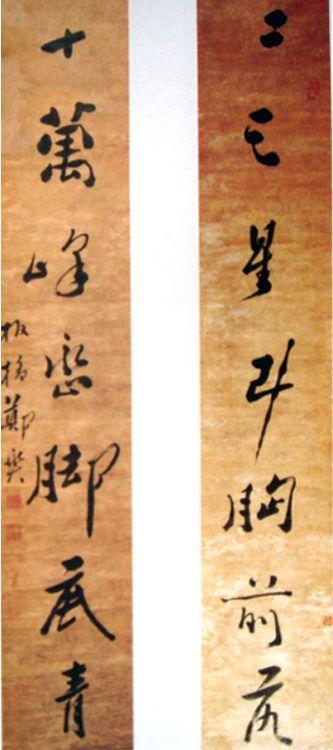 二三星斗胸前落
十萬峰巒脚底青
板橋鄭燮